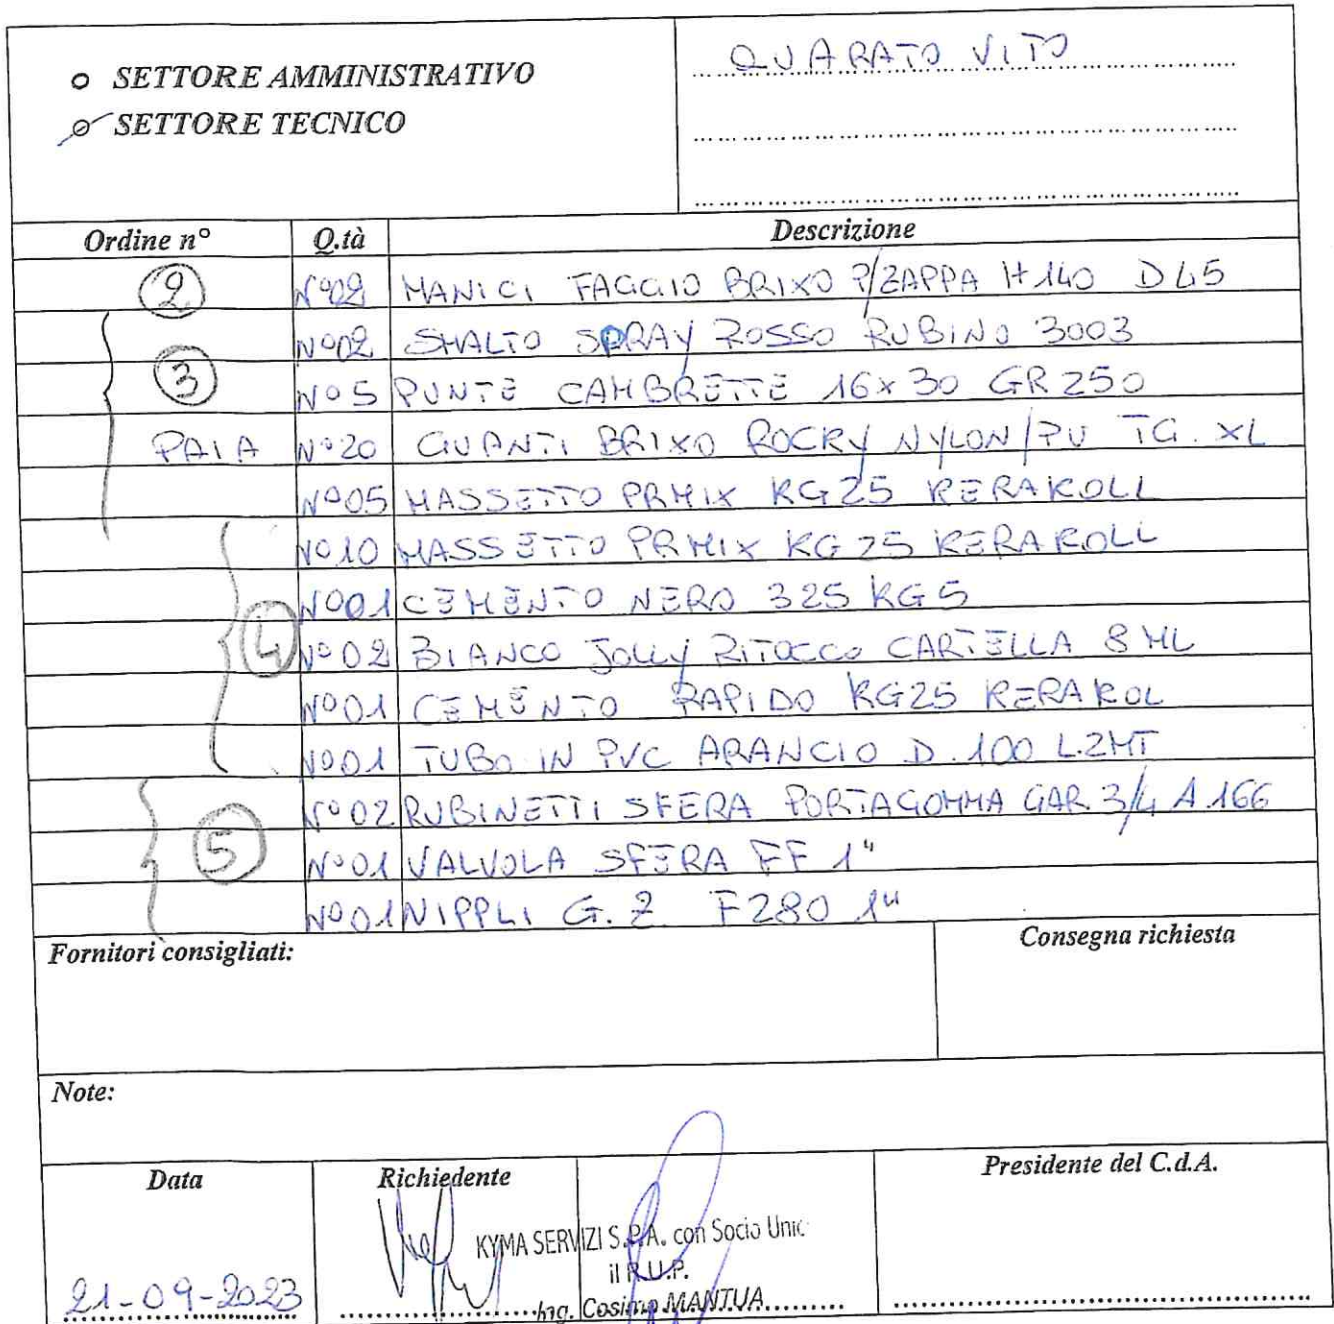 o SETTORE AMMINISTRATIVO
o SETTORE TECNICO
QUARATO VITO
Ordine n° Q.tà Descrizione
2 N°02 MANICI FAGGIO BRIXO P/ZAPPA H 140 D 45
N°02 SMALTO SPRAY ROSSO RUBINO 3003
3 N°5 PUNTE CAMBRETTE 16x30 GR 250
PAIA N°20 GUANTI BRIXO ROCKY NYLON/PU TG. XL
N°05 MASSETTO PRMIX KG25 KERAKOLL
N°10 MASSETTO PRMIX KG 25 KERAKOLL
N°01 CEMENTO NERO 325 KG5
4 N°02 BIANCO JOLLY RITOCCO CARTELLA 8 ML
N°01 CEMENTO RAPIDO KG25 KERAKOL
N°01 TUBO IN PVC ARANCIO D.100 L.2MT
N°02 RUBINETTI SFERA PORTAGOMMA GAR 3/4 A 166
5 N°01 VALVOLA SFERA FF 1"
N°01 NIPPLI G.Z F280 1"
Fornitori consigliati: Consegna richiesta
Note:
Data Richiedente Presidente del C.d.A.
KYMA SERVIZI S.P.A. con Socio Unic
il R.U.P.
21-09-2023 Ing. Cosimo MANTUA